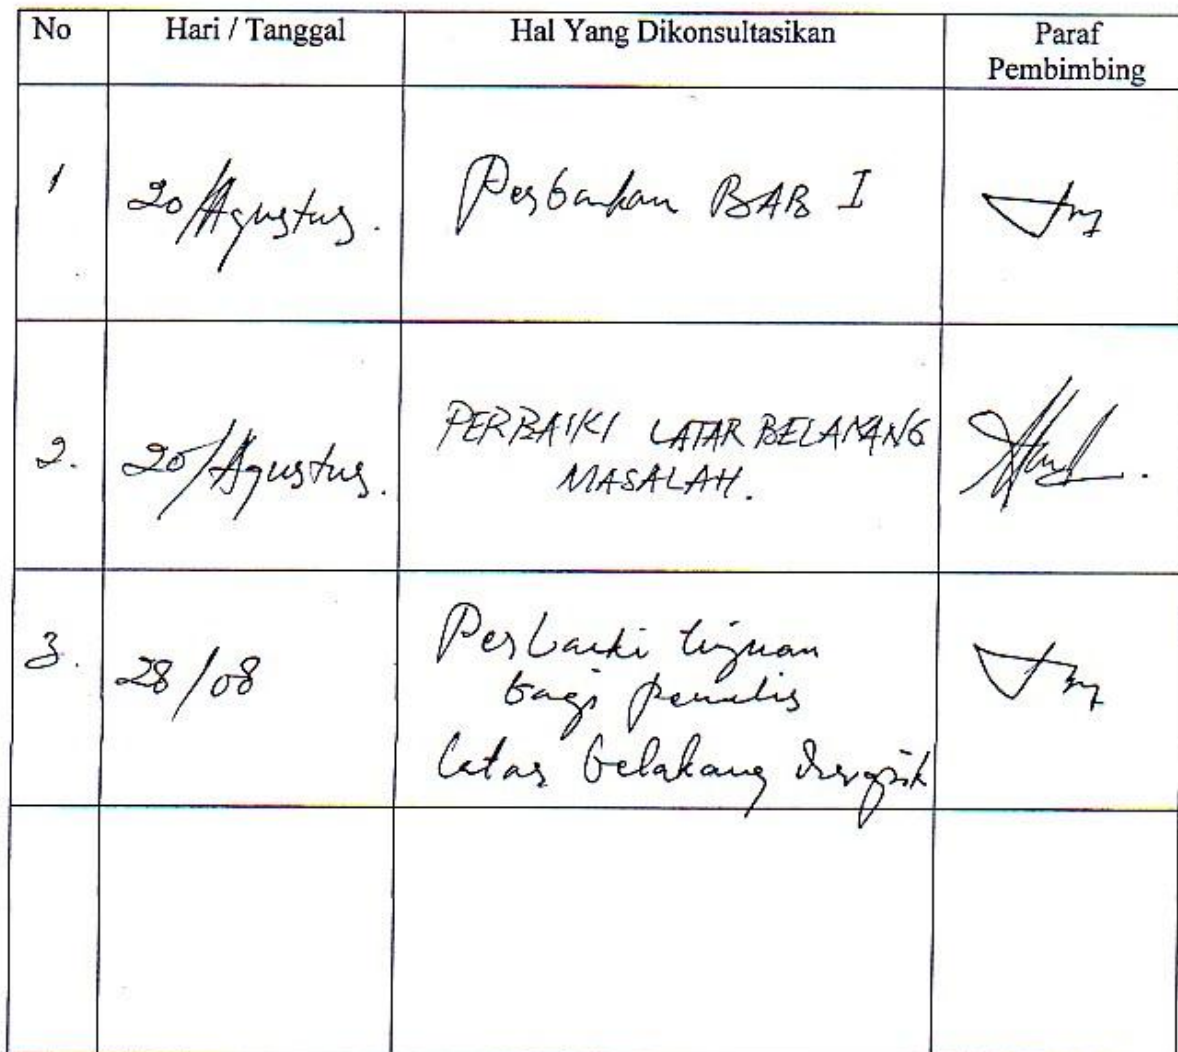 No Hari / Tanggal Hal Yang Dikonsultasikan Paraf
Pembimbing
1 20/Agustus. Perbaikan BAB I
2. 20/Agustus. PERBAIKI LATAR BELAKANG
MASALAH.
3. 28/08 Perbaiki tujuan
bagi penulis
latar belakang